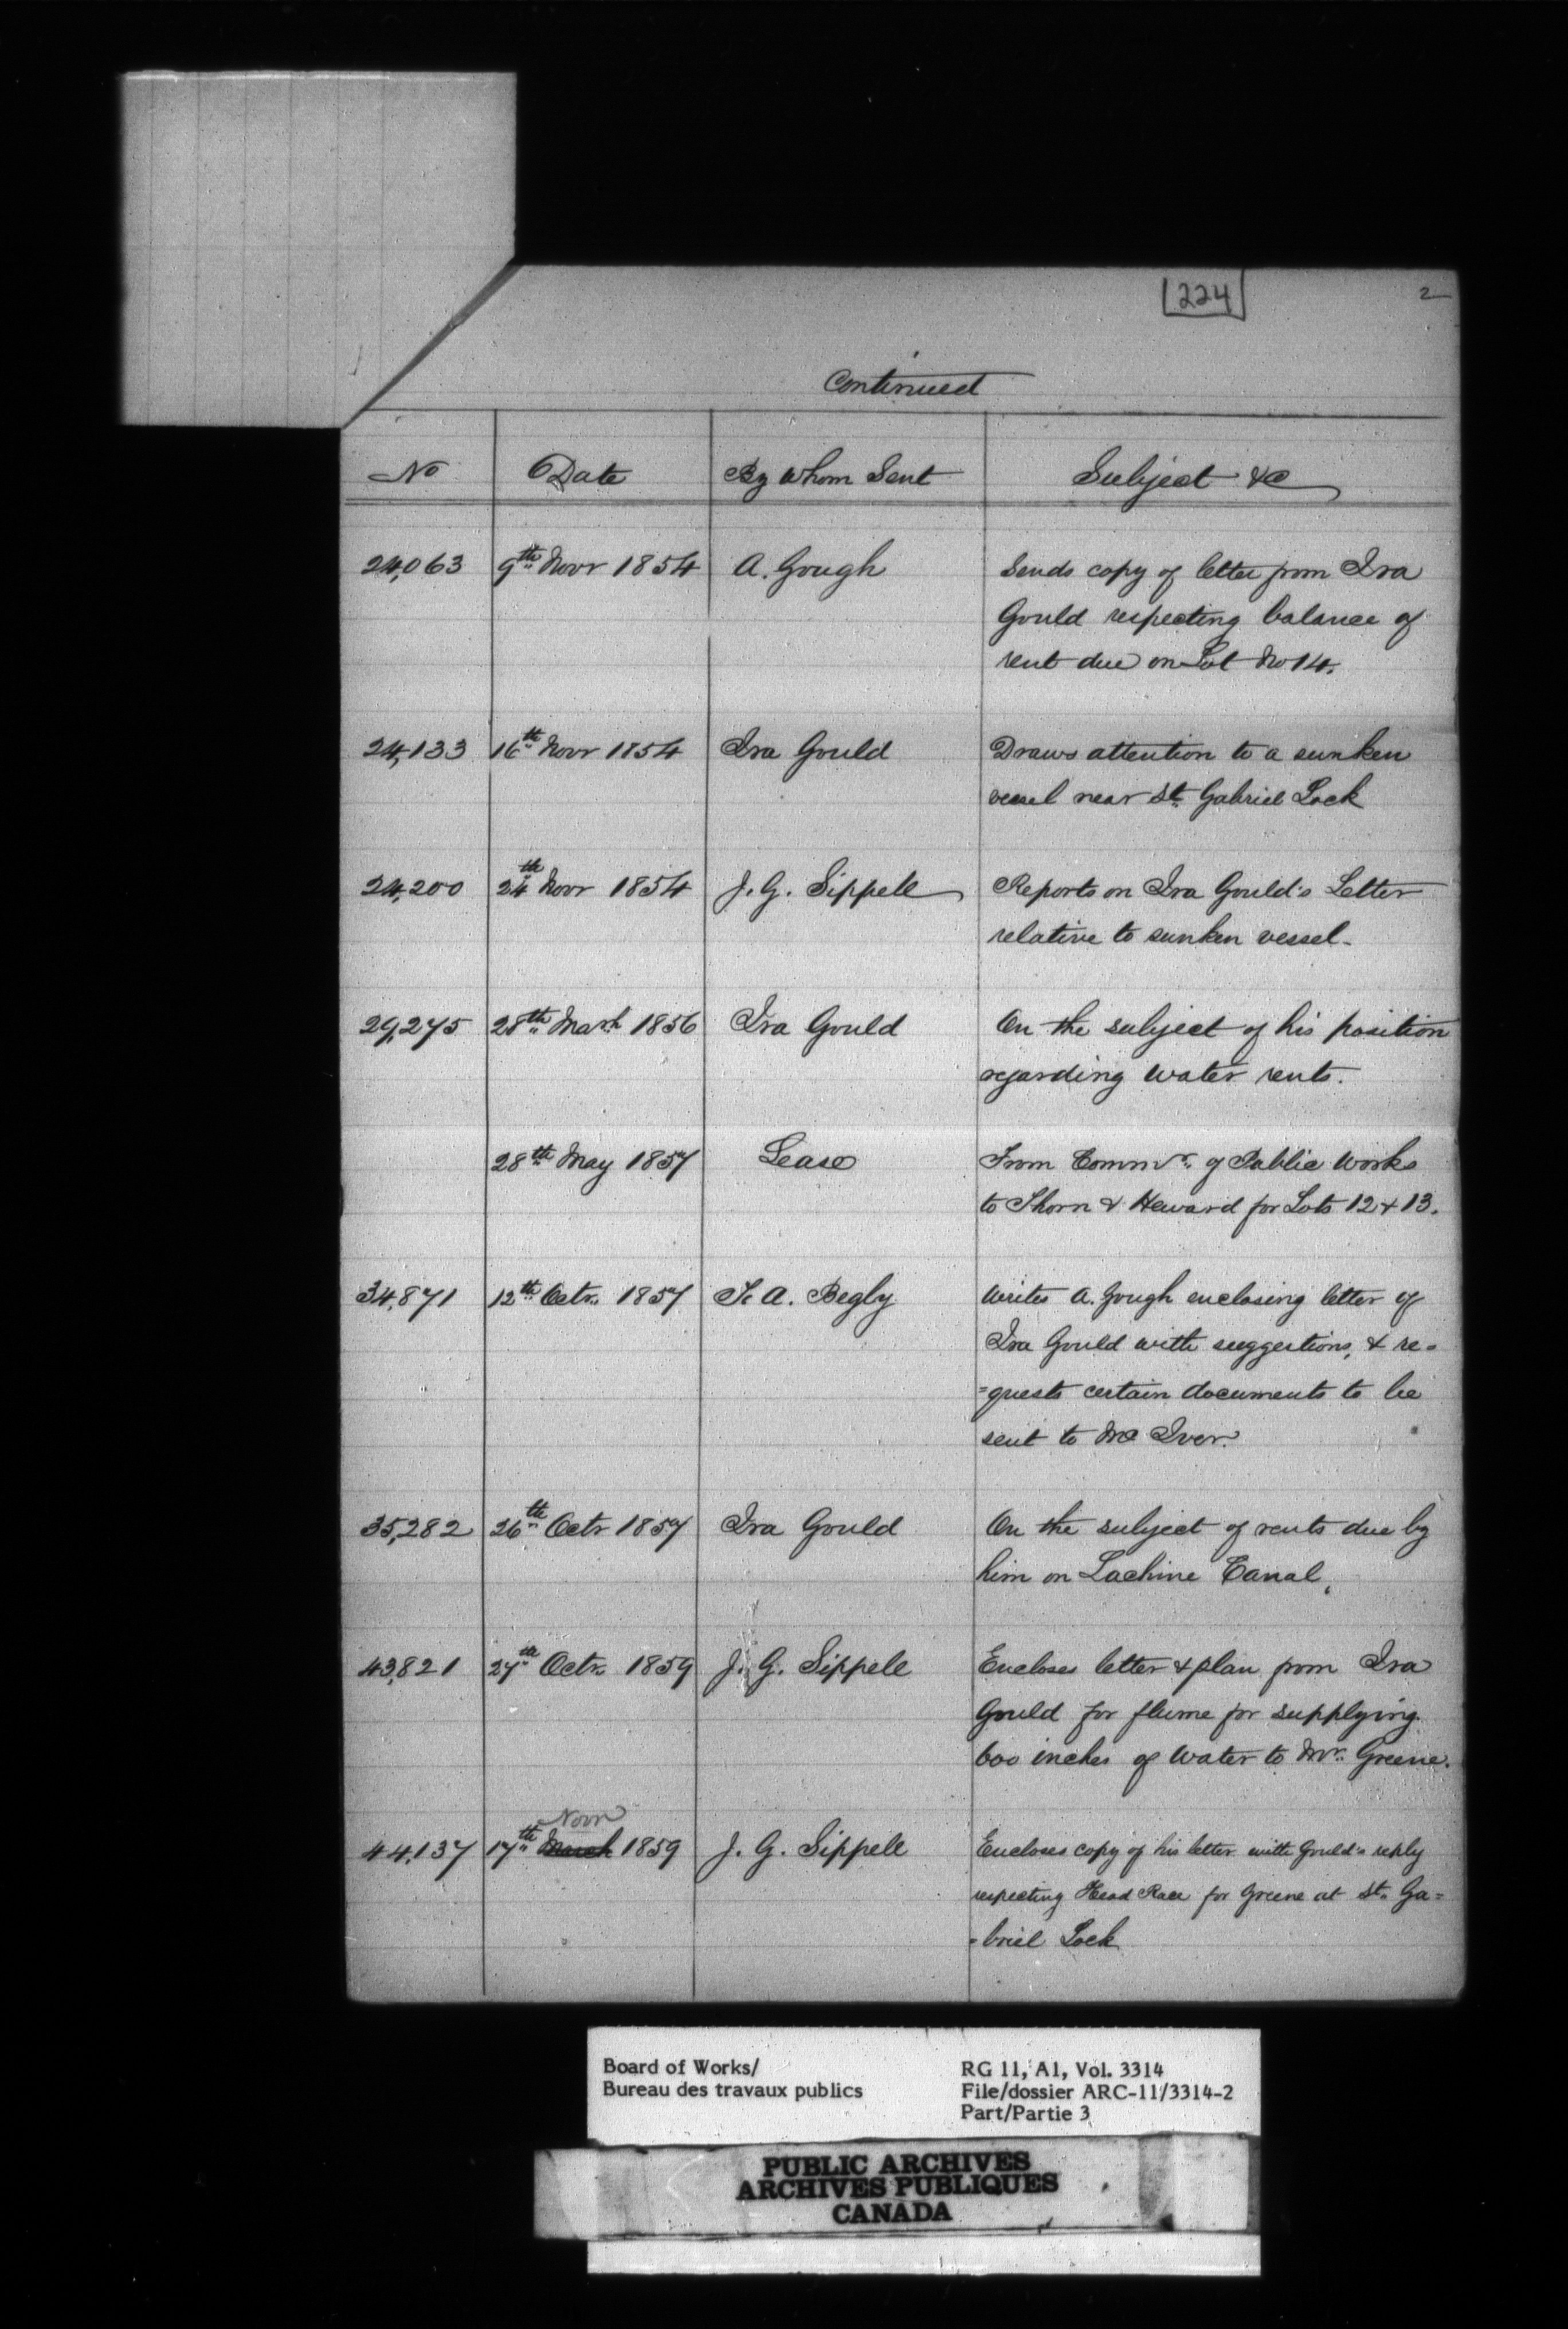 224
2
Continued
No Date By Whom Sent Subject &c
24,063 9th Novr 1854 A. Gough Sends copy of letter from Ira
Gould respecting balance of
rent due on Lot No 14.
24,133 16th Novr 1854 Ira Gould Draws attention to a sunken
vessel near St. Gabriel Lock
24,200 24th Novr 1854 J. G. Sippell Reports on Ira Gould's Letter
relative to sunken vessel.
29,275 28th March 1856 Ira Gould On the subject of his position
regarding water rents.
28th May 1857 Lease From Commrs. of Public Works
to Shorn & Heward for Lots 12 & 13.
34,871 12th Octr. 1857 T. A. Begly Writes A. Gough enclosing letter of
Ira Gould with suggestions, & re=
=quests certain documents to be
sent to Mc Iver.
35,282 26th Octr 1857 Ira Gould On the subject of rents due by
him on Lachine Canal.
43,821 27th Octr. 1859 J. G. Sippell Encloses letter & plan from Ira
Gould for flume for supplying
600 inches of water to Mr. Greene.
Novr
44,137 17th March 1859 J. G. Sippell Encloses copy of his letter with Gould's reply
respecting Head Race for Greene at St. Ga=
=briel Lock
Board of Works/ RG 11, A1, Vol. 3314
Bureau des travaux publics File/dossier ARC-11/3314-2
Part/Partie 3
PUBLIC ARCHIVES
ARCHIVES PUBLIQUES
CANADA